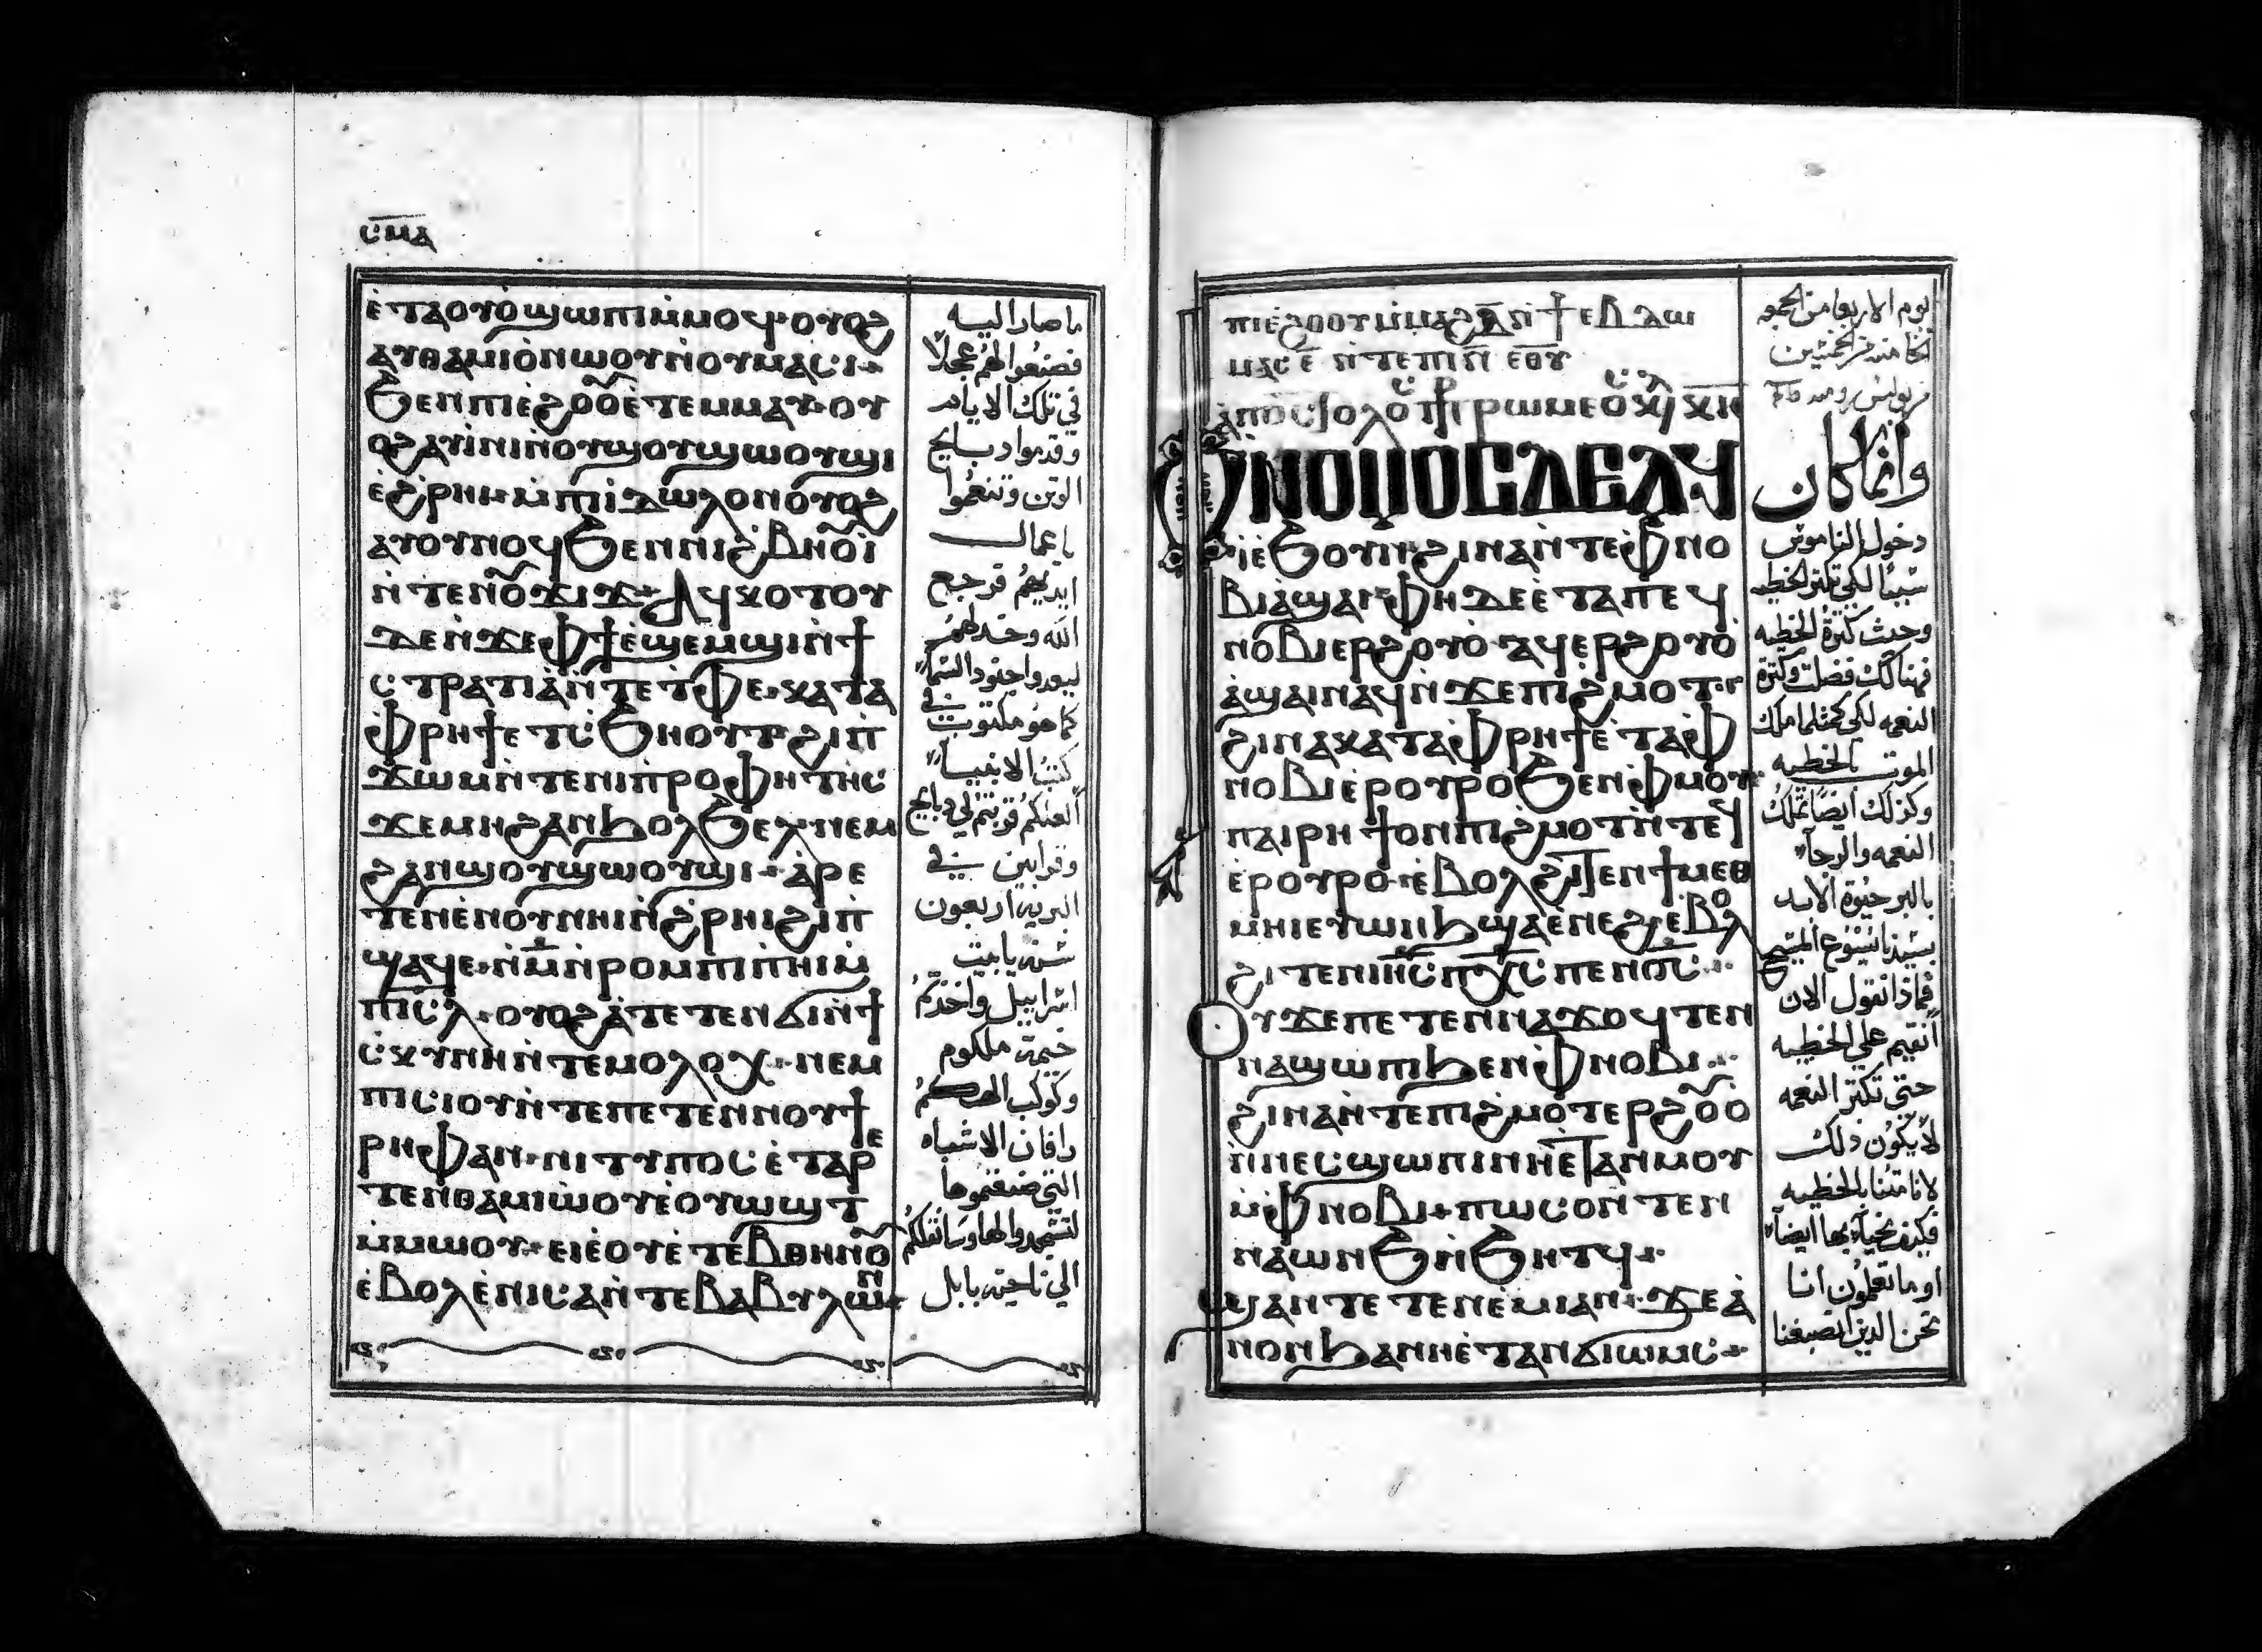 ⲥⲙⲁ
ⲉ̀ⲧⲁⲟⲩⲟ̀ϣⲱⲡⲓⲙ̀ⲙⲟϥ·ⲟⲩⲟϩ
ⲁⲩⲑⲁⲙⲓⲟ̀ⲛⲱⲟⲩⲛ̀ⲟⲩⲙⲁⲥⲓ·
ϧⲉⲛⲡⲓⲉ̀ϩⲟⲟⲩⲉ̀ⲧⲉⲙⲙⲁⲩ·ⲟⲩ
ⲟϩⲁⲩⲓ̀ⲛⲓⲛ̀ⲟⲩϣⲟⲩϣⲱⲟⲩϣⲓ
ⲉ̀ϩⲣⲏⲓ·ⲙ̀ⲡⲓⲇⲱⲗⲟⲛⲟⲩⲟϩ
ⲁⲩⲟⲩⲛⲟϥϧⲉⲛⲛⲓϩⲃⲏⲟⲩⲓ̀
ⲛ̀ⲧⲉⲛⲟⲩϫⲓϫ·ⲁϥⲕⲟⲧⲟⲩ
ⲇⲉⲛ̀ϫⲉⲫϯⲉ̀ϣⲉⲙϣⲓⲛ̀ϯ
ⲥⲧⲣⲁⲧⲓⲁ̀ⲛ̀ⲧⲉⲧⲫⲉ·ⲕⲁⲧⲁ
ⲫⲣⲏϯⲉⲧⲥϧⲏⲟⲩⲧ·ϩⲓⲡ̀
ϫⲱⲙⲛ̀ⲧⲉⲛⲓⲡⲣⲟⲫⲏⲧⲏⲥ
ϫⲉⲙⲏϩⲁⲛϧⲟⲗϧⲉⲗ·ⲛⲉⲙ
ϩⲁⲛϣⲟⲩϣⲱⲟⲩϣⲓ·ⲁ̀ⲣⲉ
ⲧⲉⲛⲉ̀ⲛⲟⲩⲛⲏⲓⲛ̀ϩⲣⲏⲓϩⲓⲡ̀
ϣⲁϥⲉ·ⲛ̀ⲙ̅ⲛ̀ⲣⲟⲙⲡⲓⲡⲏⲓⲙ̀
ⲡⲓⲥⲗ·ⲟⲩⲟϩⲁ̀ⲧⲉⲧⲉⲛϭⲓⲛ̀ϯ
ⲥⲕⲩⲛⲏⲛ̀ⲧⲉⲙⲟⲗⲟⲭ·ⲛⲉⲙ
ⲡⲓⲥⲓⲟⲩⲛ̀ⲧⲉⲡⲉⲧⲉⲛⲛⲟⲩϯ
ⲣⲏⲫⲁⲛ·ⲛⲓⲧⲩⲡⲟⲥⲉ̀ⲧⲁⲣⲉ
ⲧⲉⲛⲑⲁⲙⲓⲱ̀ⲟⲩⲉ̀ⲟⲩⲱϣⲧ
ⲙ̀ⲙⲱⲟⲩ·ⲉⲓⲉ̀ⲟⲩⲉ̀ⲧⲉⲃⲑⲏⲛⲟⲩ
ⲉ̀ⲃⲟⲗⲉ̀ⲛⲓⲥⲁⲛ̀ⲧⲉⲃⲁⲃⲩⲗⲱⲛ
ما صار اليه
فصنعوا لهم عجلاً
في تلك الايام
وقدموا دبايح
الوتن وتنعموا
باعمال
ايديهم فرجع
الله وخدلهم
ليعبدوا جنود السما
كما هو مكتوب في
كتب الانبيا
العلكم قربتم لي دبايح
وقرابين في
البريه اربعون
سنه يا بيت
اسراييل واخدتم
خيمة ملكوم
وكوكب الهكم
رافان الاشباه
التي صنعتموها
لتسجدوا لها وسانقلكم
الي ناحية بابل
ⲡⲓⲉ̀ϩⲟⲟⲩⲙ̀ⲙⲁϩⲇ̅ⲛ̀ϯⲉⲃⲇⲱ
ⲙⲁⲥⲉ̅ ⲛ̀ⲧⲉⲡⲓⲛ̅ ⲉⲑⲩ
ⲁⲡⲟⲥⲧⲟⲗⲟⲥ ⲡⲣⲟⲥ ⲣⲱⲙⲉⲟⲥ
ⲟⲩⲛⲟⲙⲟⲥⲇⲉⲁϥ
ⲓⲉ̀ϧⲟⲩⲛ·ϩⲓⲛⲁⲛ̀ⲧⲉⲫⲛⲟ
ⲃⲓⲁϣⲁⲓ·ⲫⲏⲇⲉⲉ̀ⲧⲁⲡⲉϥ
ⲛⲟⲃⲓⲉⲣϩⲟⲩⲟ̀·ⲁϥⲉⲣϩⲟⲩⲟ̀
ⲁ̀ϣⲁⲓⲛⲁϥⲛ̀ϫⲉⲡⲓϩⲙⲟⲧ·
ϩⲓⲛⲁⲕⲁⲧⲁⲫⲣⲏϯⲉ̀ⲧⲁⲫ
ⲛⲟⲃⲓⲉⲣⲟⲩⲣⲟϧⲉⲛⲫⲙⲟⲩ·
ⲡⲁⲓⲣⲏϯⲟⲛⲡⲓϩⲙⲟⲧⲛ̀ⲧⲉϥ
ⲉⲣⲟⲩⲣⲟ·ⲉ̀ⲃⲟⲗϩⲓⲧⲉⲛϯⲙⲉⲑ
ⲙⲏⲓⲉⲩⲱⲛϧϣⲁⲉ̀ⲛⲉϩ·ⲉⲃⲟⲗ
ϩⲓⲧⲉⲛⲓⲏ̅ⲥ̅ⲡⲭ̅ⲥ̅ⲡⲉⲛⲟ̅ⲥ̅·
ⲟⲩϫⲉⲡⲉⲧⲉⲛⲛⲁϫⲟϥⲧⲉⲛ
ⲛⲁϣⲱⲡⲓϧⲉⲛⲫⲛⲟⲃⲓ·
ϩⲓⲛⲁⲛ̀ⲧⲉⲡⲓϩⲙⲟⲧⲉⲣϩⲟⲩⲟ
ⲛ̀ⲛⲉⲥϣⲱⲡⲓⲛⲏⲉⲧⲁⲛⲙⲟⲩ
ⲙ̀ⲫⲛⲟⲃⲓ·ⲡⲱⲥⲟⲛⲧⲉⲛ
ⲛⲁⲱⲛϧⲛ̀ϧⲏⲧϥ·
ϣⲁⲛⲧⲉⲧⲉⲛⲉ̀ⲙⲓⲁⲛ·ϫⲉⲁ̀
ⲛⲟⲛϧⲁⲛⲏⲉ̀ⲧⲁⲛϭⲓⲱⲙⲥ·
اليوم الاربعا من الجمعه
وانما كان
دخول الناموس
سببًا لكي تكتر الخطيه
وحيث كترة الخطيه
فهنالك فضلت وكترة
النعمه لكي كمثلما ملك
الموت بالخطيه
وكذلك ايضًا تملك
النعمه والرجا
بالبر حيوة الابد
بسيدنا يسوع المسيح
فماذا نقول الان
انقيم علي الخطييه
حتي تكتر النعمه
لا يكون دلك
لانا متنا بالخطييه
فكيف نحيا بها ايضاً
او ما تعلمون اننا
نحن الدين انصبغنا